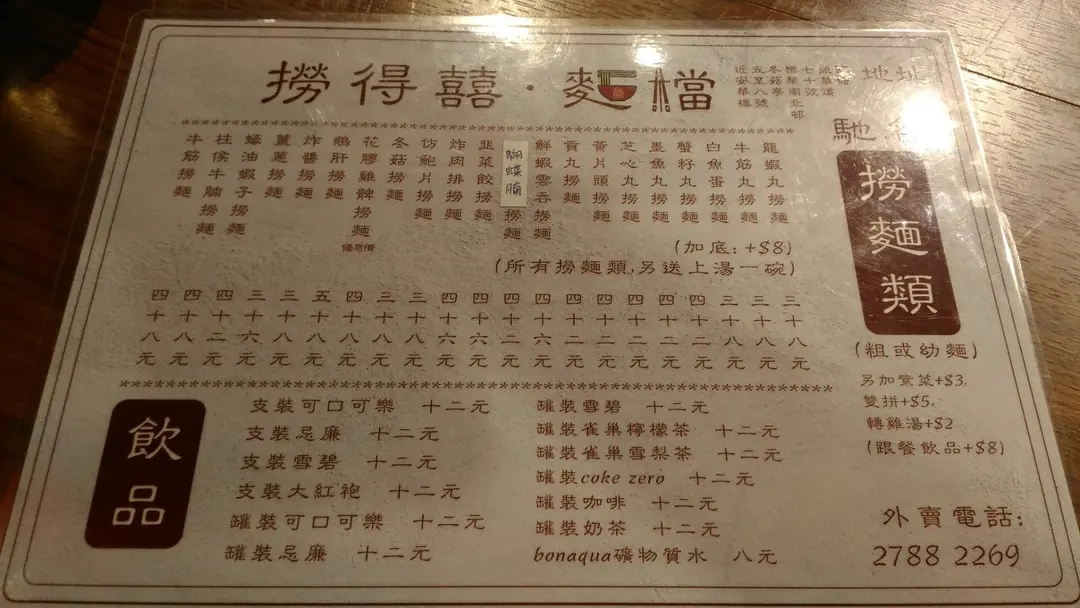 撈得囍·麵檔
地址
撈麵類
(粗或幼麵)
另加紫菜+$3,
雙拼+$5,
轉雞湯+$2
(跟餐飲品+$8)
龍蝦丸撈麵
牛筋丸撈麵
白魚蛋撈麵
蟹籽丸撈麵
墨魚丸撈麵
芝心丸撈麵
黃片頭撈麵
貢丸撈麵
鮮蝦雲吞撈麵
蝴蝶腩撈麵
韭菜餃撈麵
炸肉排撈麵
仿鮑片撈麵
冬菇撈麵
花膠雞髀撈麵
優惠價
鵝肝撈麵
炸醬撈麵
薑蔥撈麵
蠔油蝦子撈麵
柱侯牛腩撈麵
牛筋撈麵
(加底:+$8)
(所有撈麵類,另送上湯一碗)
三十八元
三十八元
三十八元
四十二元
四十二元
四十二元
四十二元
四十二元
四十六元
四十二元
四十六元
四十六元
三十八元
三十八元
四十二元
五十八元
三十八元
三十六元
四十二元
四十八元
四十八元
飲品
支裝可口可樂 十二元
支裝忌廉 十二元
支裝雪碧 十二元
支裝大紅袍 十二元
罐裝可口可樂 十二元
罐裝忌廉 十二元
罐裝雪碧 十二元
罐裝雀巢檸檬茶 十二元
罐裝雀巢雪梨茶 十二元
罐裝coke zero 十二元
罐裝咖啡 十二元
罐裝奶茶 十二元
bonaqua礦物質水 八元
外賣電話:
2788 2269